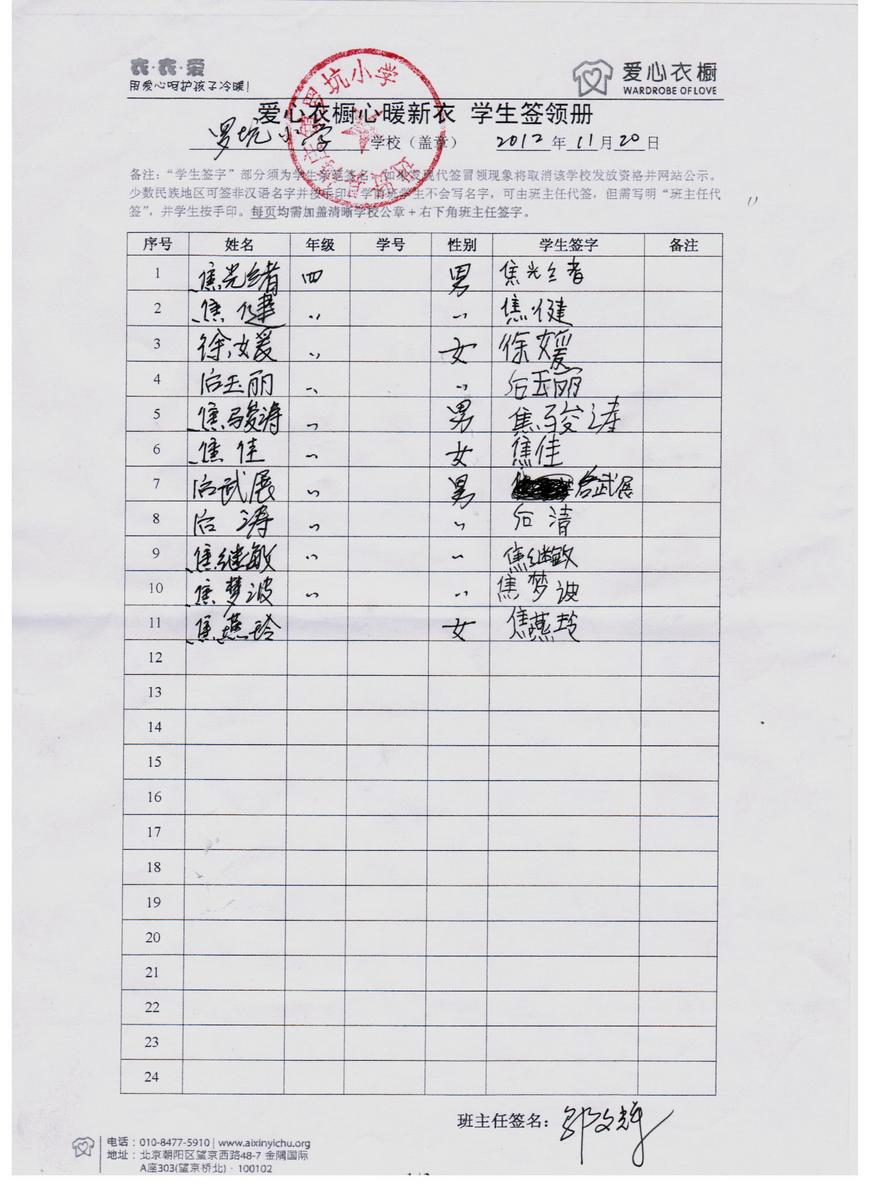 衣·衣·爱
用爱心呵护孩子冷暖!
爱心衣橱
WARDROBE OF LOVE
罗坑小学
爱心衣橱心暖新衣 学生签领册
罗坑小学 学校（盖章） 2012 年 11 月 20 日
备注：“学生签字”部分须为学生亲笔签名，如有发现代签冒领现象将取消该学校发放资格并网站公示。
少数民族地区可签非汉语名字并按手印。学前班学生不会写名字，可由班主任代签，但需写明“班主任代
签”，并学生按手印。每页均需加盖清晰学校公章+右下角班主任签字。
序号 姓名 年级 学号 性别 学生签字 备注
1 焦光绪 四 男 焦光绪
2 焦健 〃 〃 焦健
3 徐媛 〃 女 徐媛
4 后玉丽 〃 〃 后玉丽
5 焦骏涛 〃 男 焦骏涛
6 焦佳 〃 女 焦佳
7 后武展 〃 男 后武展
8 后涛 〃 〃 后清
9 焦继敏 〃 〃 焦继敏
10 焦梦波 〃 〃 焦梦波
11 焦燕玲 女 焦燕玲
12
13
14
15
16
17
18
19
20
21
22
23
24
班主任签名：
电话：010-8477-5910 | www.aixinyichu.org
地址：北京朝阳区望京西路48-7 金隅国际
A座303(望京桥北)·100102